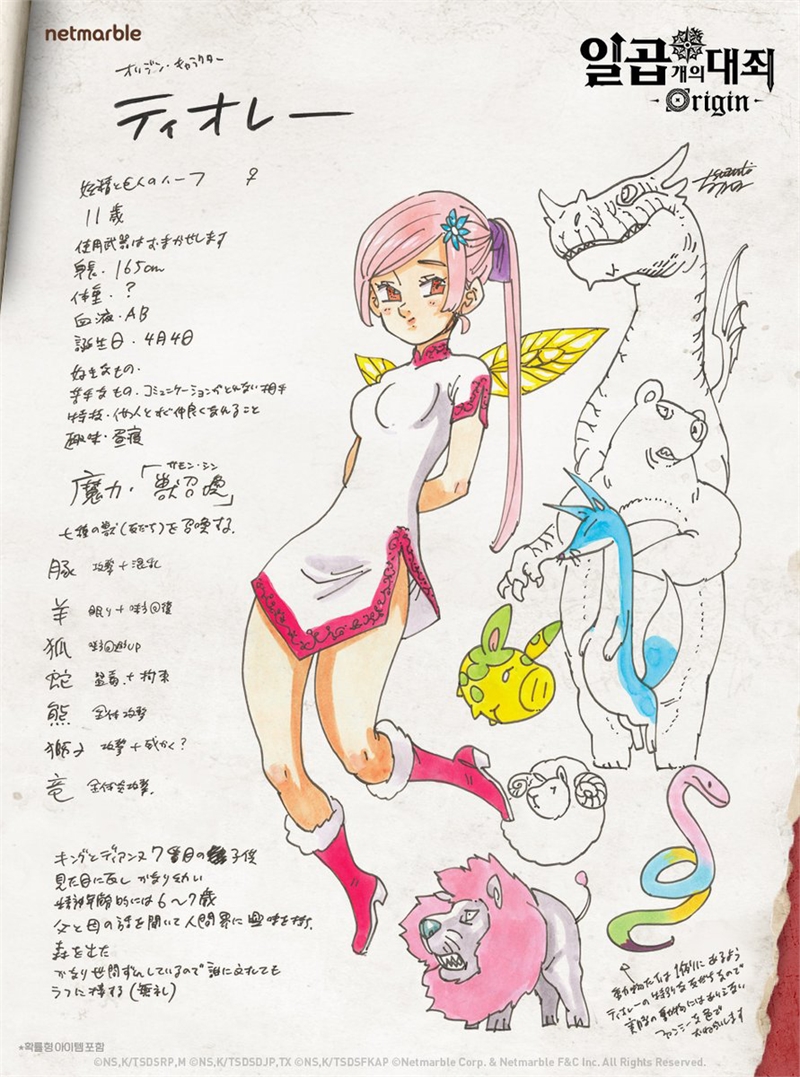 netmarble
일곱개의 대죄
Origin
オリジン・キャラクター
ティオレー
妖精と巨人のハーフ ♀
11歳
使用武器はおまかせします
身長・165cm
体重・?
血液・AB
誕生日・4月4日
好きなもの・
苦手なもの・コミュニケーションがとれない相手
特技・他人とすぐ仲良くなれること
趣味・昼寝
サモン・シン
魔力・「獣召喚」
七種の獣(友だち)を召喚する。
豚 攻撃+混乱
羊 眠り+回復
狐 UP
蛇 猛毒+拘束
熊 全体攻撃
獅子 攻撃+威かく?
竜 全体炎攻撃。
キングとディアンヌ7番目の子供
見た目に反しかなり幼い
精神年齢的には6〜7歳
父と母の話を聞いて人間界に興味を持ち、
森を出た
かなり世間ずれしているので誰に対しても
ラフに接する(無礼)
動物たちは1例にあるよう
ティオレーの特別な友だちなので
実際の動物にはありえない
ファンシーな色で
おねがいします
*확률형 아이템 포함
©NS,K/TSDSRP,M ©NS,K/TSDSDJP,TX ©NS,K/TSDSFKAP ©Netmarble Corp. & Netmarble F&C Inc. All Rights Reserved.